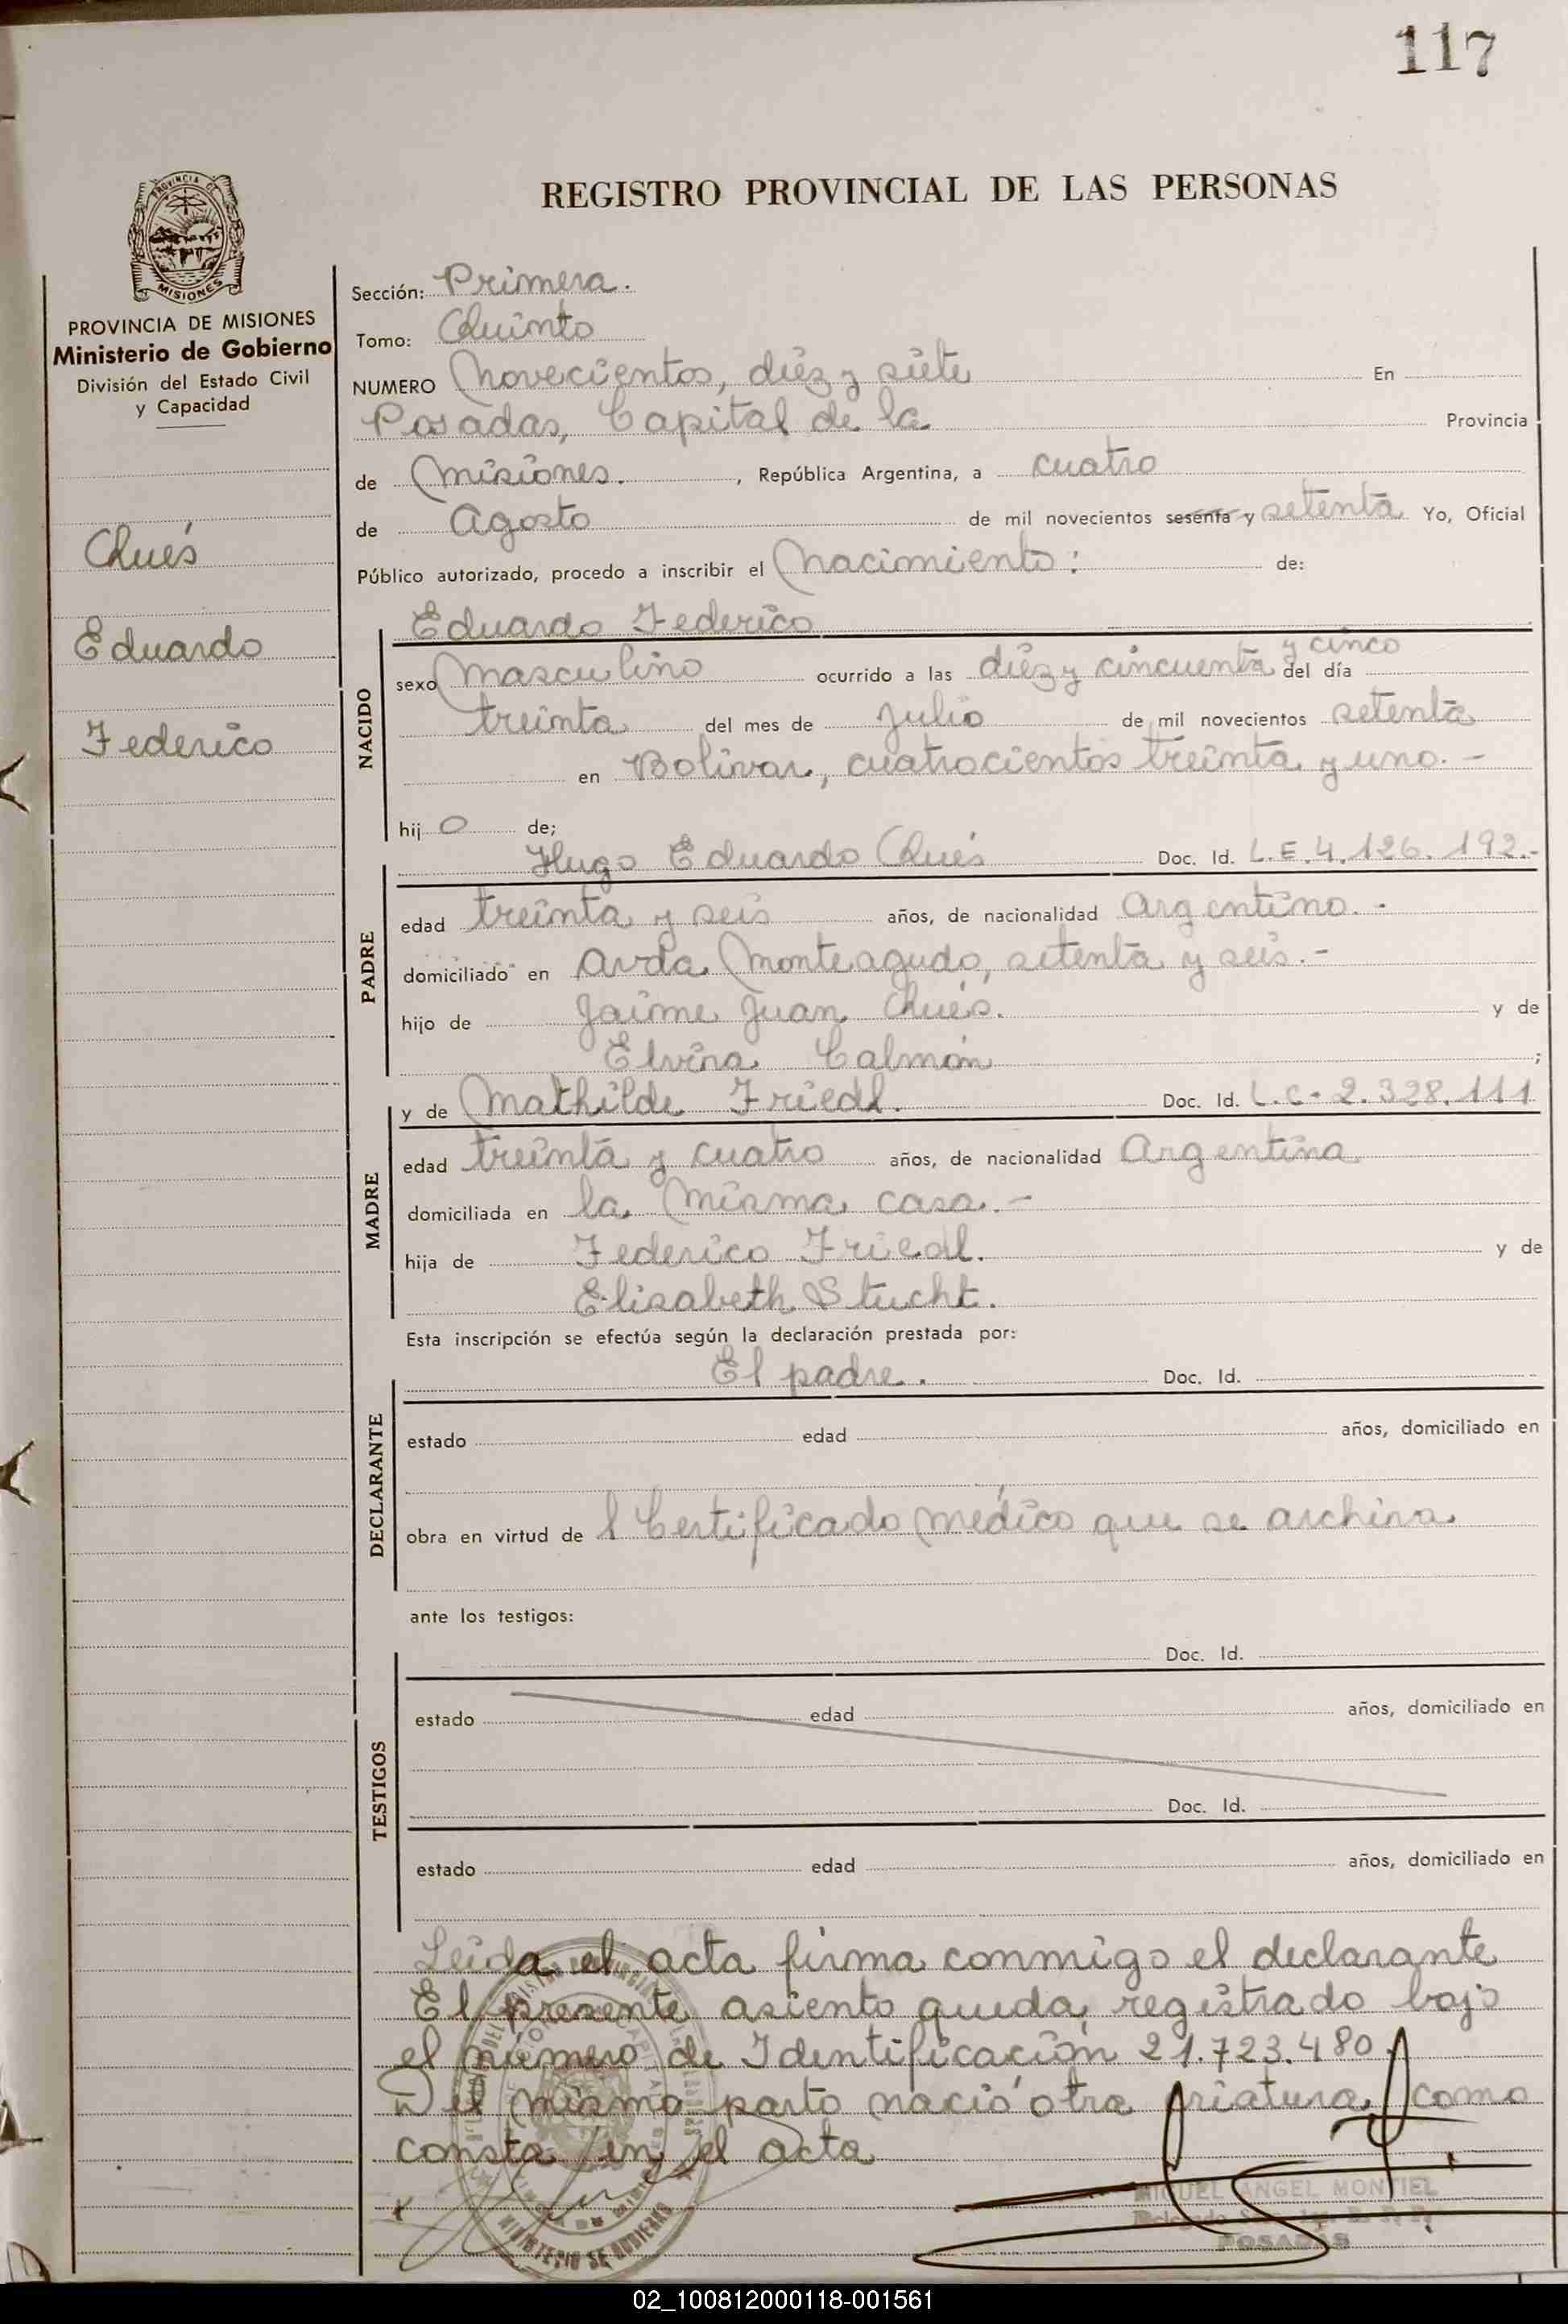 117
REGISTRO PROVINCIAL DE LAS PERSONAS
PROVINCIA DE MISIONES
PROVINCIA DE MISIONES
Ministerio de Gobierno
División del Estado Civil
y Capacidad
Qués
Eduardo
Federico
Sección: Primera.
Tomo: Quinto
NUMERO Novecientos, diéz y siete En
Posadas, Capital de la Provincia
de Misiones. , República Argentina, a cuatro
de Agosto de mil novecientos sesenta y setenta Yo, Oficial
Público autorizado, procedo a inscribir el Nacimiento: de:
Eduardo Federico
NACIDO
sexo Masculino ocurrido a las diéz y cincuenta y cinco del día
treinta del mes de Julio de mil novecientos setenta
en Bolivar, cuatrocientos treinta y uno. -
hij o de;
Hugo Eduardo Qués Doc. Id. L.E. 4.126.192.-
PADRE
edad treinta y seis años, de nacionalidad Argentino. -
domiciliado en Avda Monteagudo, setenta y seis. -
hijo de Jaime Juan Qués. y de
Elvira Calmón ;
y de Mathilde Friedl. Doc. Id. L.C- 2.328.111
MADRE
edad treinta y cuatro años, de nacionalidad Argentina
domiciliada en la misma casa. -
hija de Federico Friedl. y de
Elisabeth Stucht.
Esta inscripción se efectúa según la declaración prestada por:
El padre. Doc. Id.
DECLARANTE
estado edad años, domiciliado en
obra en virtud de l Certificado médico que se archiva
ante los testigos:
Doc. Id.
TESTIGOS
estado edad años, domiciliado en
Doc. Id.
estado edad años, domiciliado en
Leida el acta firma conmigo el declarante
El presente asiento queda registrado bajo
el número de Identificación 21.723.480.
Del mismo parto nació otra criatura, como
consta en el acta
MIGUEL ANGEL MONTIEL
POSADAS
02_100812000118-001561